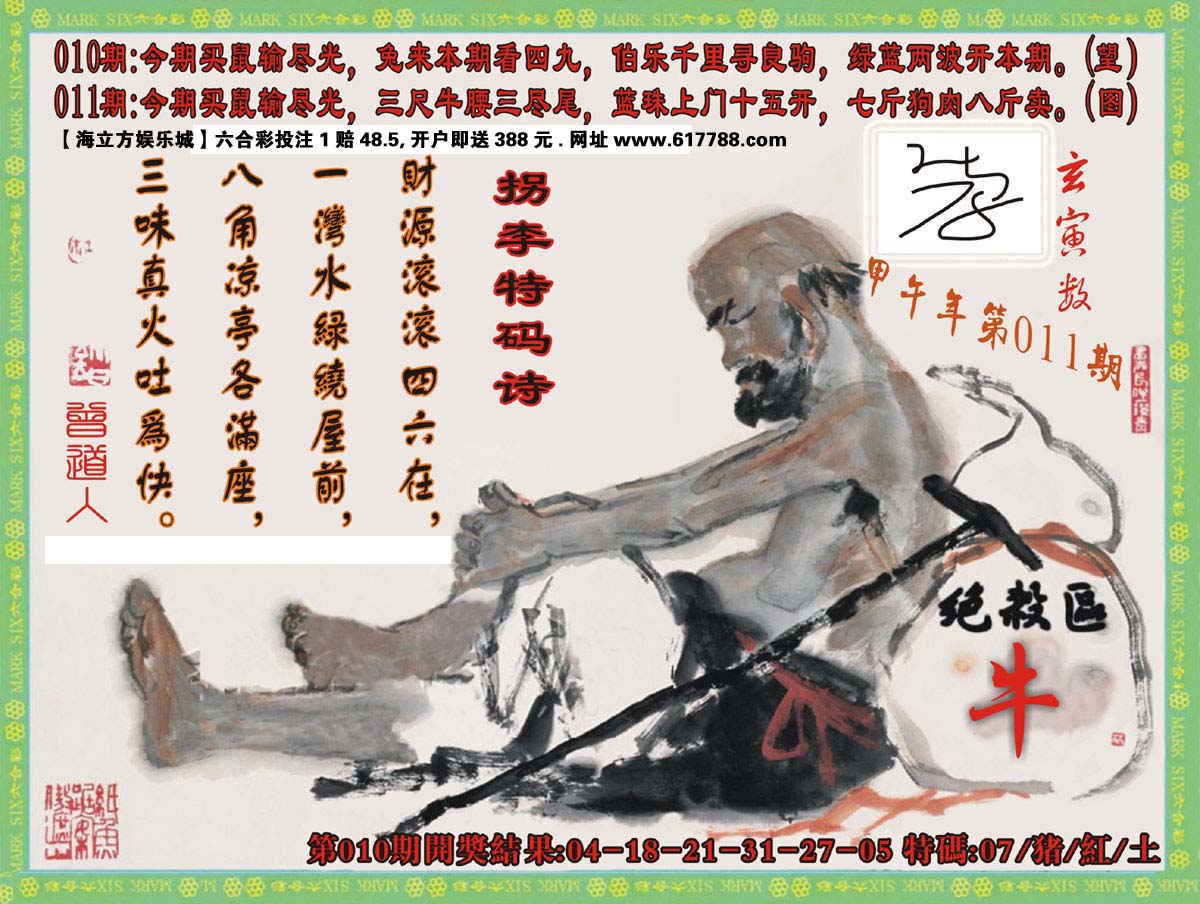 MARK SIX六合彩
010期:今期买鼠输尽光，兔来本期看四九，伯乐千里寻良驹，绿蓝两波开本期。(望)
011期:今期买鼠输尽光，三尺牛腰三尽尾，蓝珠上门十五开，七斤狗肉八斤卖。(图)
【海立方娱乐城】六合彩投注1赔48.5,开户即送388元.网址www.617788.com
玄寅数
甲午年第011期
拐李特码诗
財源滚滚四六在，
一灣水緑繞屋前，
八角凉亭各滿座，
三味真火吐爲快。
曾道人
绝殺區
牛
第010期開獎結果:04-18-21-31-27-05 特碼:07/猪/紅/土